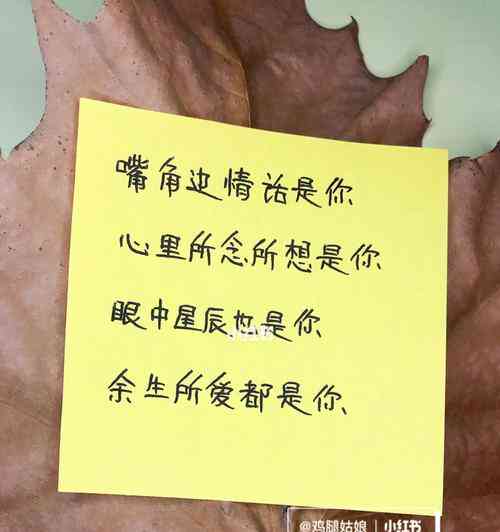 嘴角边情话是你
心里所念所想是你
眼中星辰也是你
小红书
余生所爱都是你
@鸡腿姑娘 | 小红书